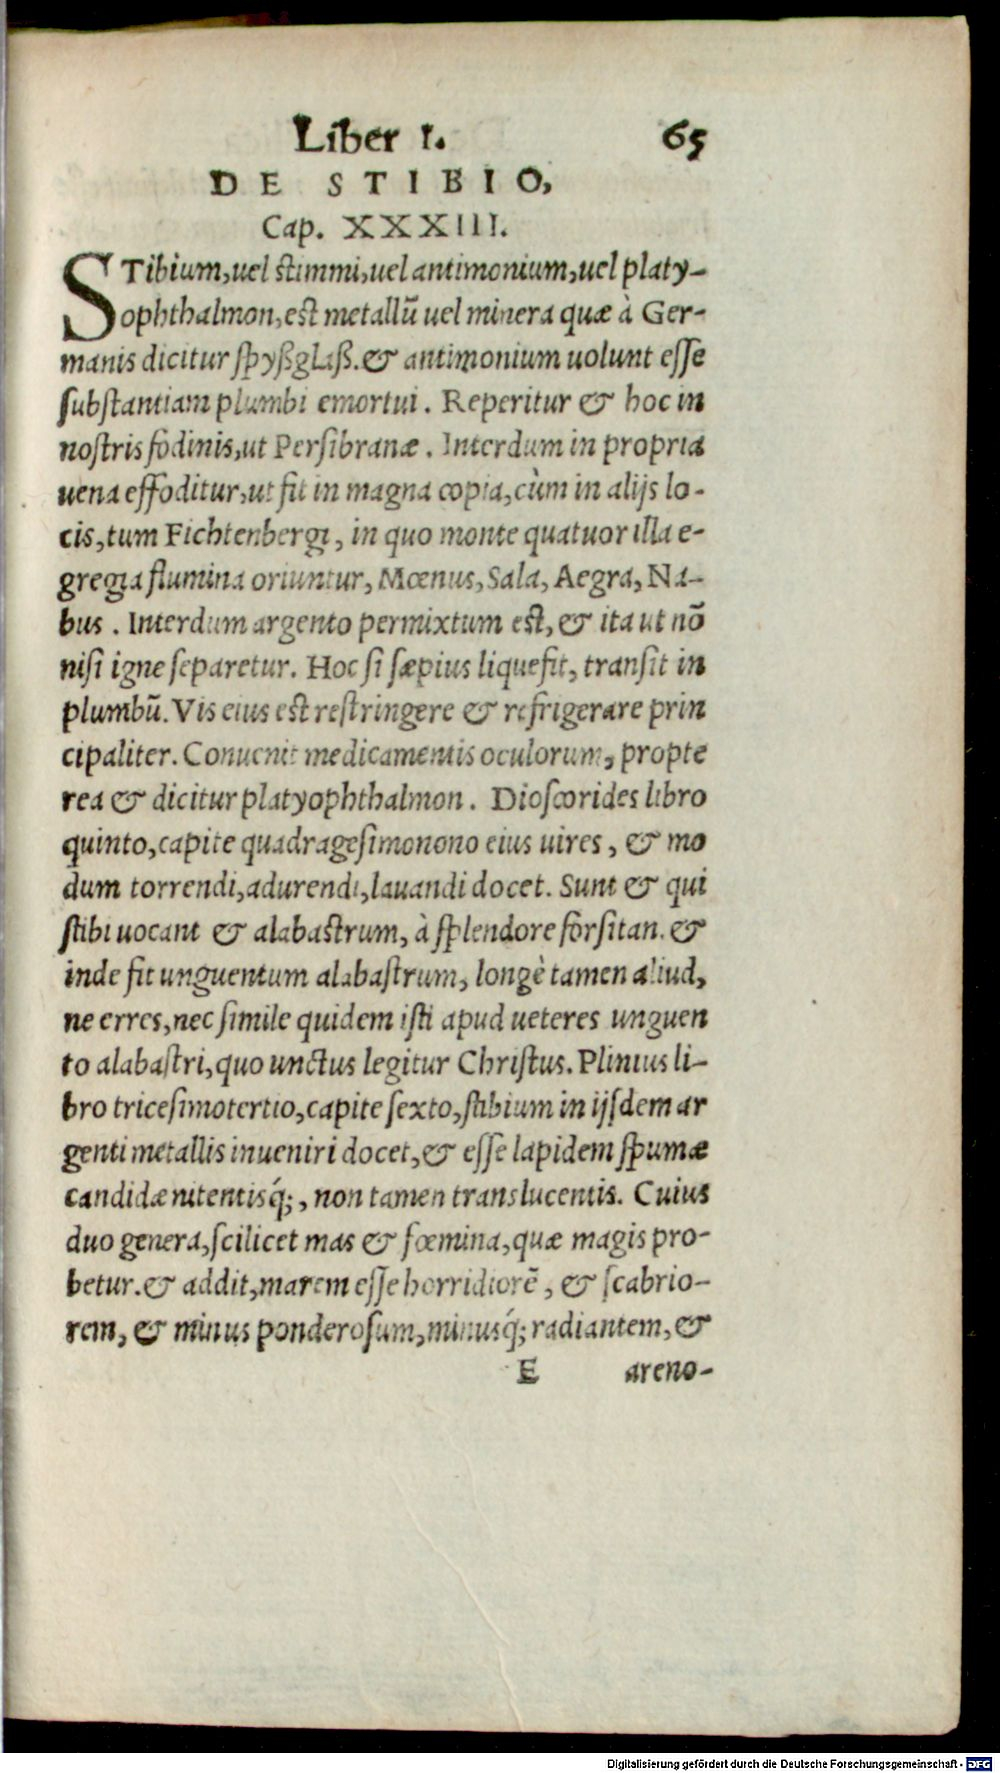 Liber I. 65
DE STIBIO,
Cap. XXXIII.
STibium, uel stimmi, uel antimonium, uel platy-
ophthalmon, est metallū uel minera quæ à Ger-
manis dicitur spyßglaß. & antimonium uolunt esse
substantiam plumbi emortui. Reperitur & hoc in
nostris fodinis, ut Persibranæ. Interdum in propria
uena effoditur, ut fit in magna copia, cùm in alijs lo-
cis, tum Fichtenbergi, in quo monte quatuor illa e-
gregia flumina oriuntur, Mœnus, Sala, Aegra, Na-
bus. Interdum argento permixtum est, & ita ut nō
nisi igne separetur. Hoc si sæpius liquefit, transit in
plumbū. Vis eius est restringere & refrigerare prin
cipaliter. Conuenit medicamentis oculorum, propte
rea & dicitur platyophthalmon. Dioscorides libro
quinto, capite quadragesimonono eius uires, & mo
dum torrendi, adurendi, lauandi docet. Sunt & qui
stibi uocant & alabastrum, à splendore forsitan. &
inde fit unguentum alabastrum, longè tamen aliud,
ne erres, nec simile quidem isti apud ueteres unguen
to alabastri, quo unctus legitur Christus. Plinius li-
bro tricesimotertio, capite sexto, stibium in ijsdem ar
genti metallis inueniri docet, & esse lapidem spumæ
candidæ nitentisq́;, non tamen translucentis. Cuius
duo genera, scilicet mas & fœmina, quæ magis pro-
betur. & addit, marem esse horridiorē, & scabrio-
rem, & minus ponderosum, minusq́; radiantem, &
E areno-
Digitalisierung gefördert durch die Deutsche Forschungsgemeinschaft - DFG